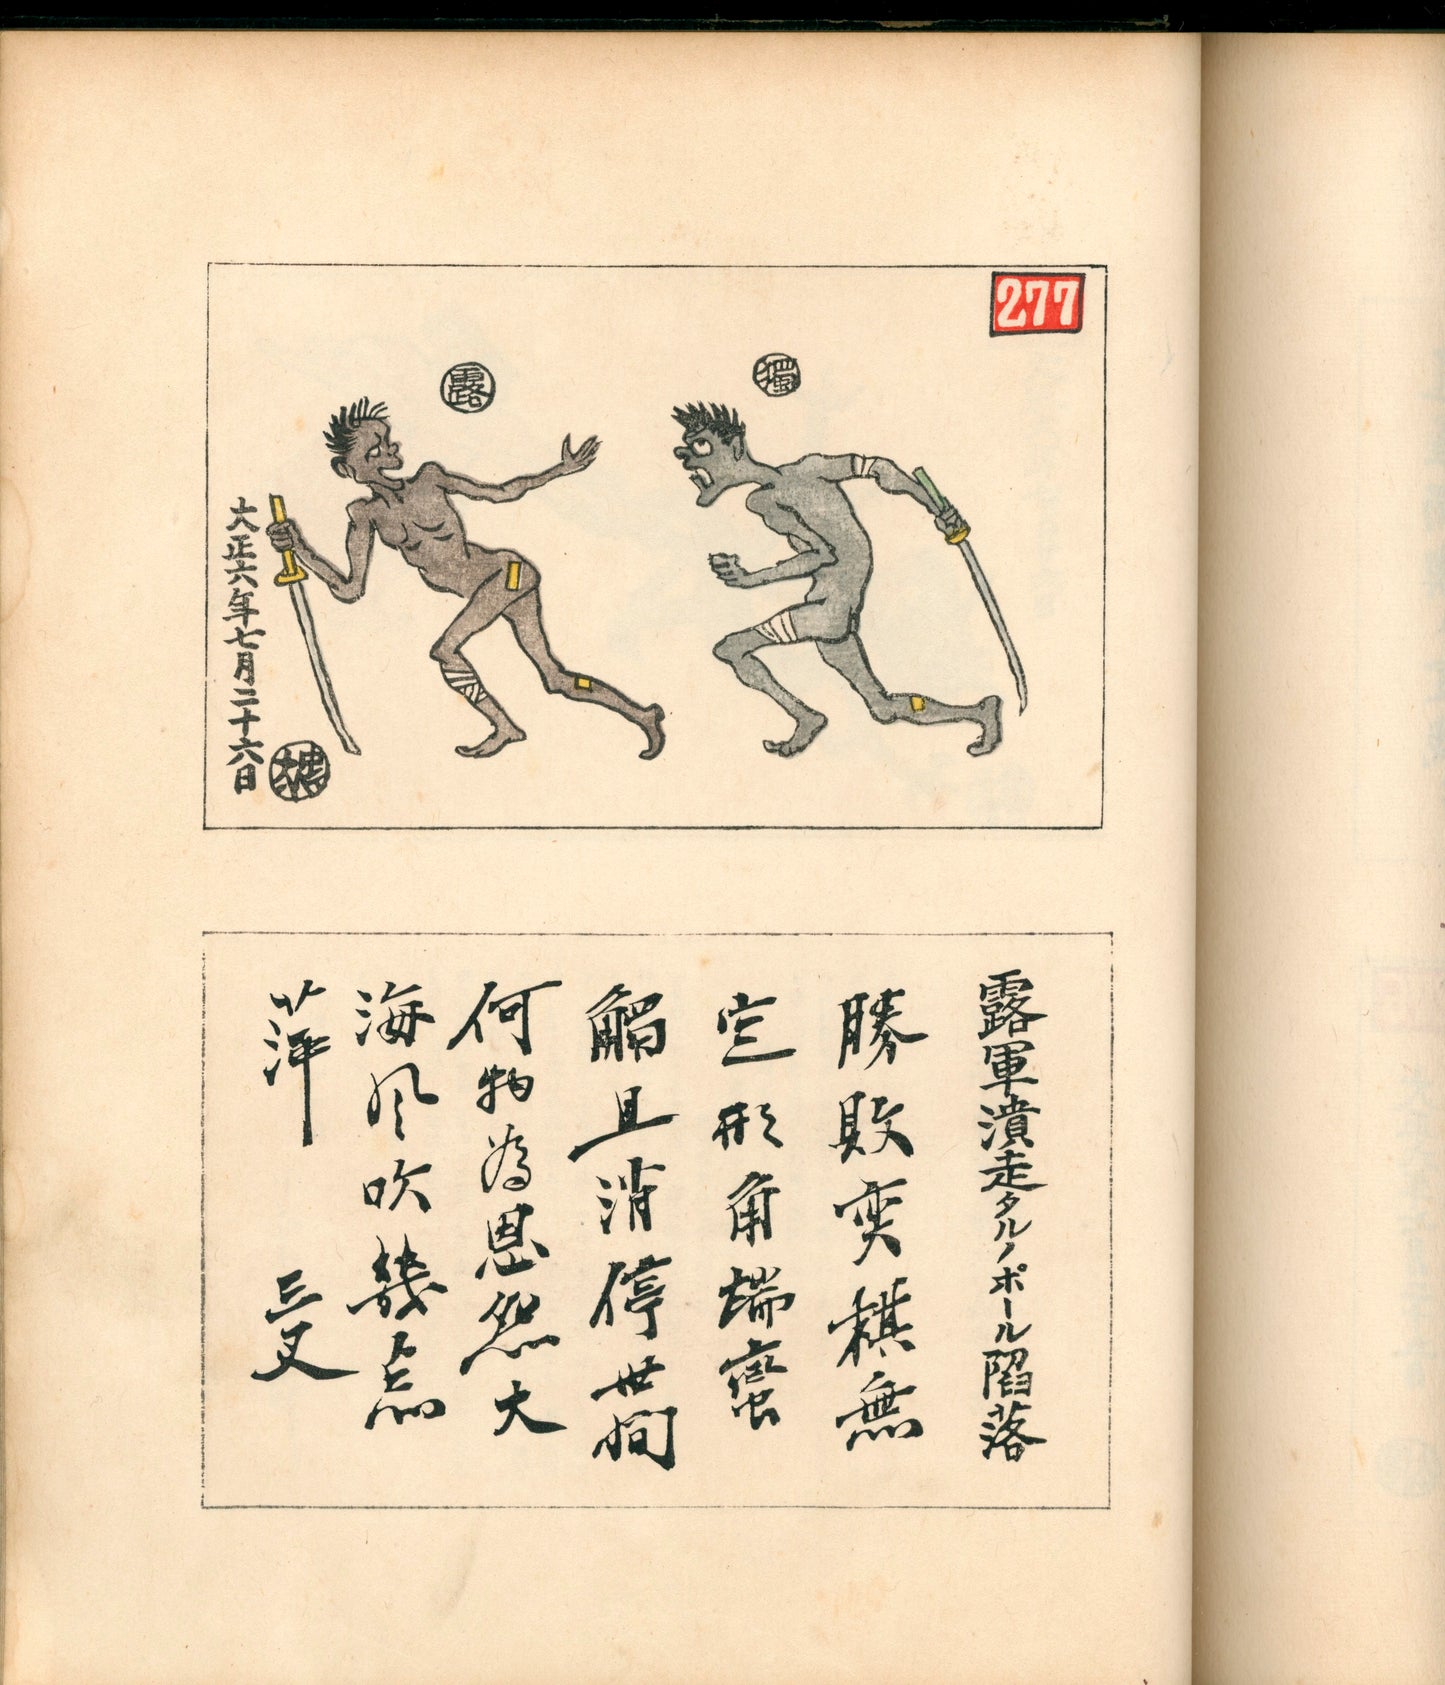 277
獨
露
大正六年七月二十六日
露軍潰走タルノポール陥落
勝敗奕棋無
定形角端蛮
觸且消停世間
何物為恩怨大
海風吹幾点
萍 三叉